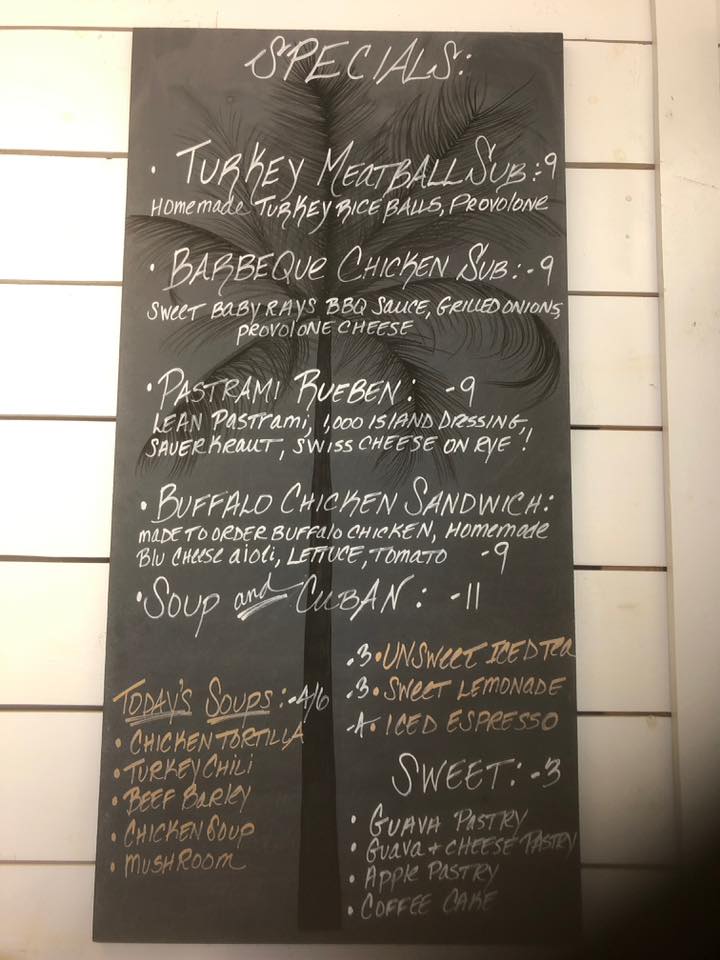 SPECIALS:
• TURKEY MEATBALL SUB: -9
Homemade TURKEY RICE BALLS, PROVOLONE
• BARBEQUE CHICKEN SUB: -9
SWEET BABY RAYS BBQ SAUCE, GRILLED ONIONS,
PROVOLONE CHEESE
• PASTRAMI RUEBEN: -9
LEAN PASTRAMI, 1,000 ISLAND DRESSING,
SAUERKRAUT, SWISS CHEESE ON RYE!
• BUFFALO CHICKEN SANDWICH:
MADE TO ORDER BUFFALO CHICKEN, Homemade
Blu CHEESE aioli, LETTUCE, TOMATO -9
• SOUP and CUBAN: -11
TODAY'S SOUPS: -4/6
• CHICKEN TORTILLA
• TURKEY CHILI
• BEEF BARLEY
• CHICKEN SOUP
• MUSHROOM
.3 • UNSWEET ICED TEA
.3 • SWEET LEMONADE
-4 • ICED ESPRESSO
SWEET: -3
• GUAVA PASTRY
• GUAVA + CHEESE PASTRY
• APPLE PASTRY
• COFFEE CAKE